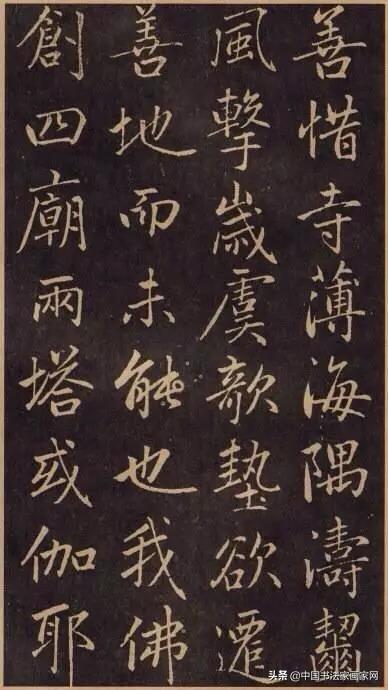 善惜寺薄海隅濤齧
風擊歲虞欹墊欲遷
善地而未能也我佛
創四廟兩塔或伽耶
头条 @中国书法家画家网